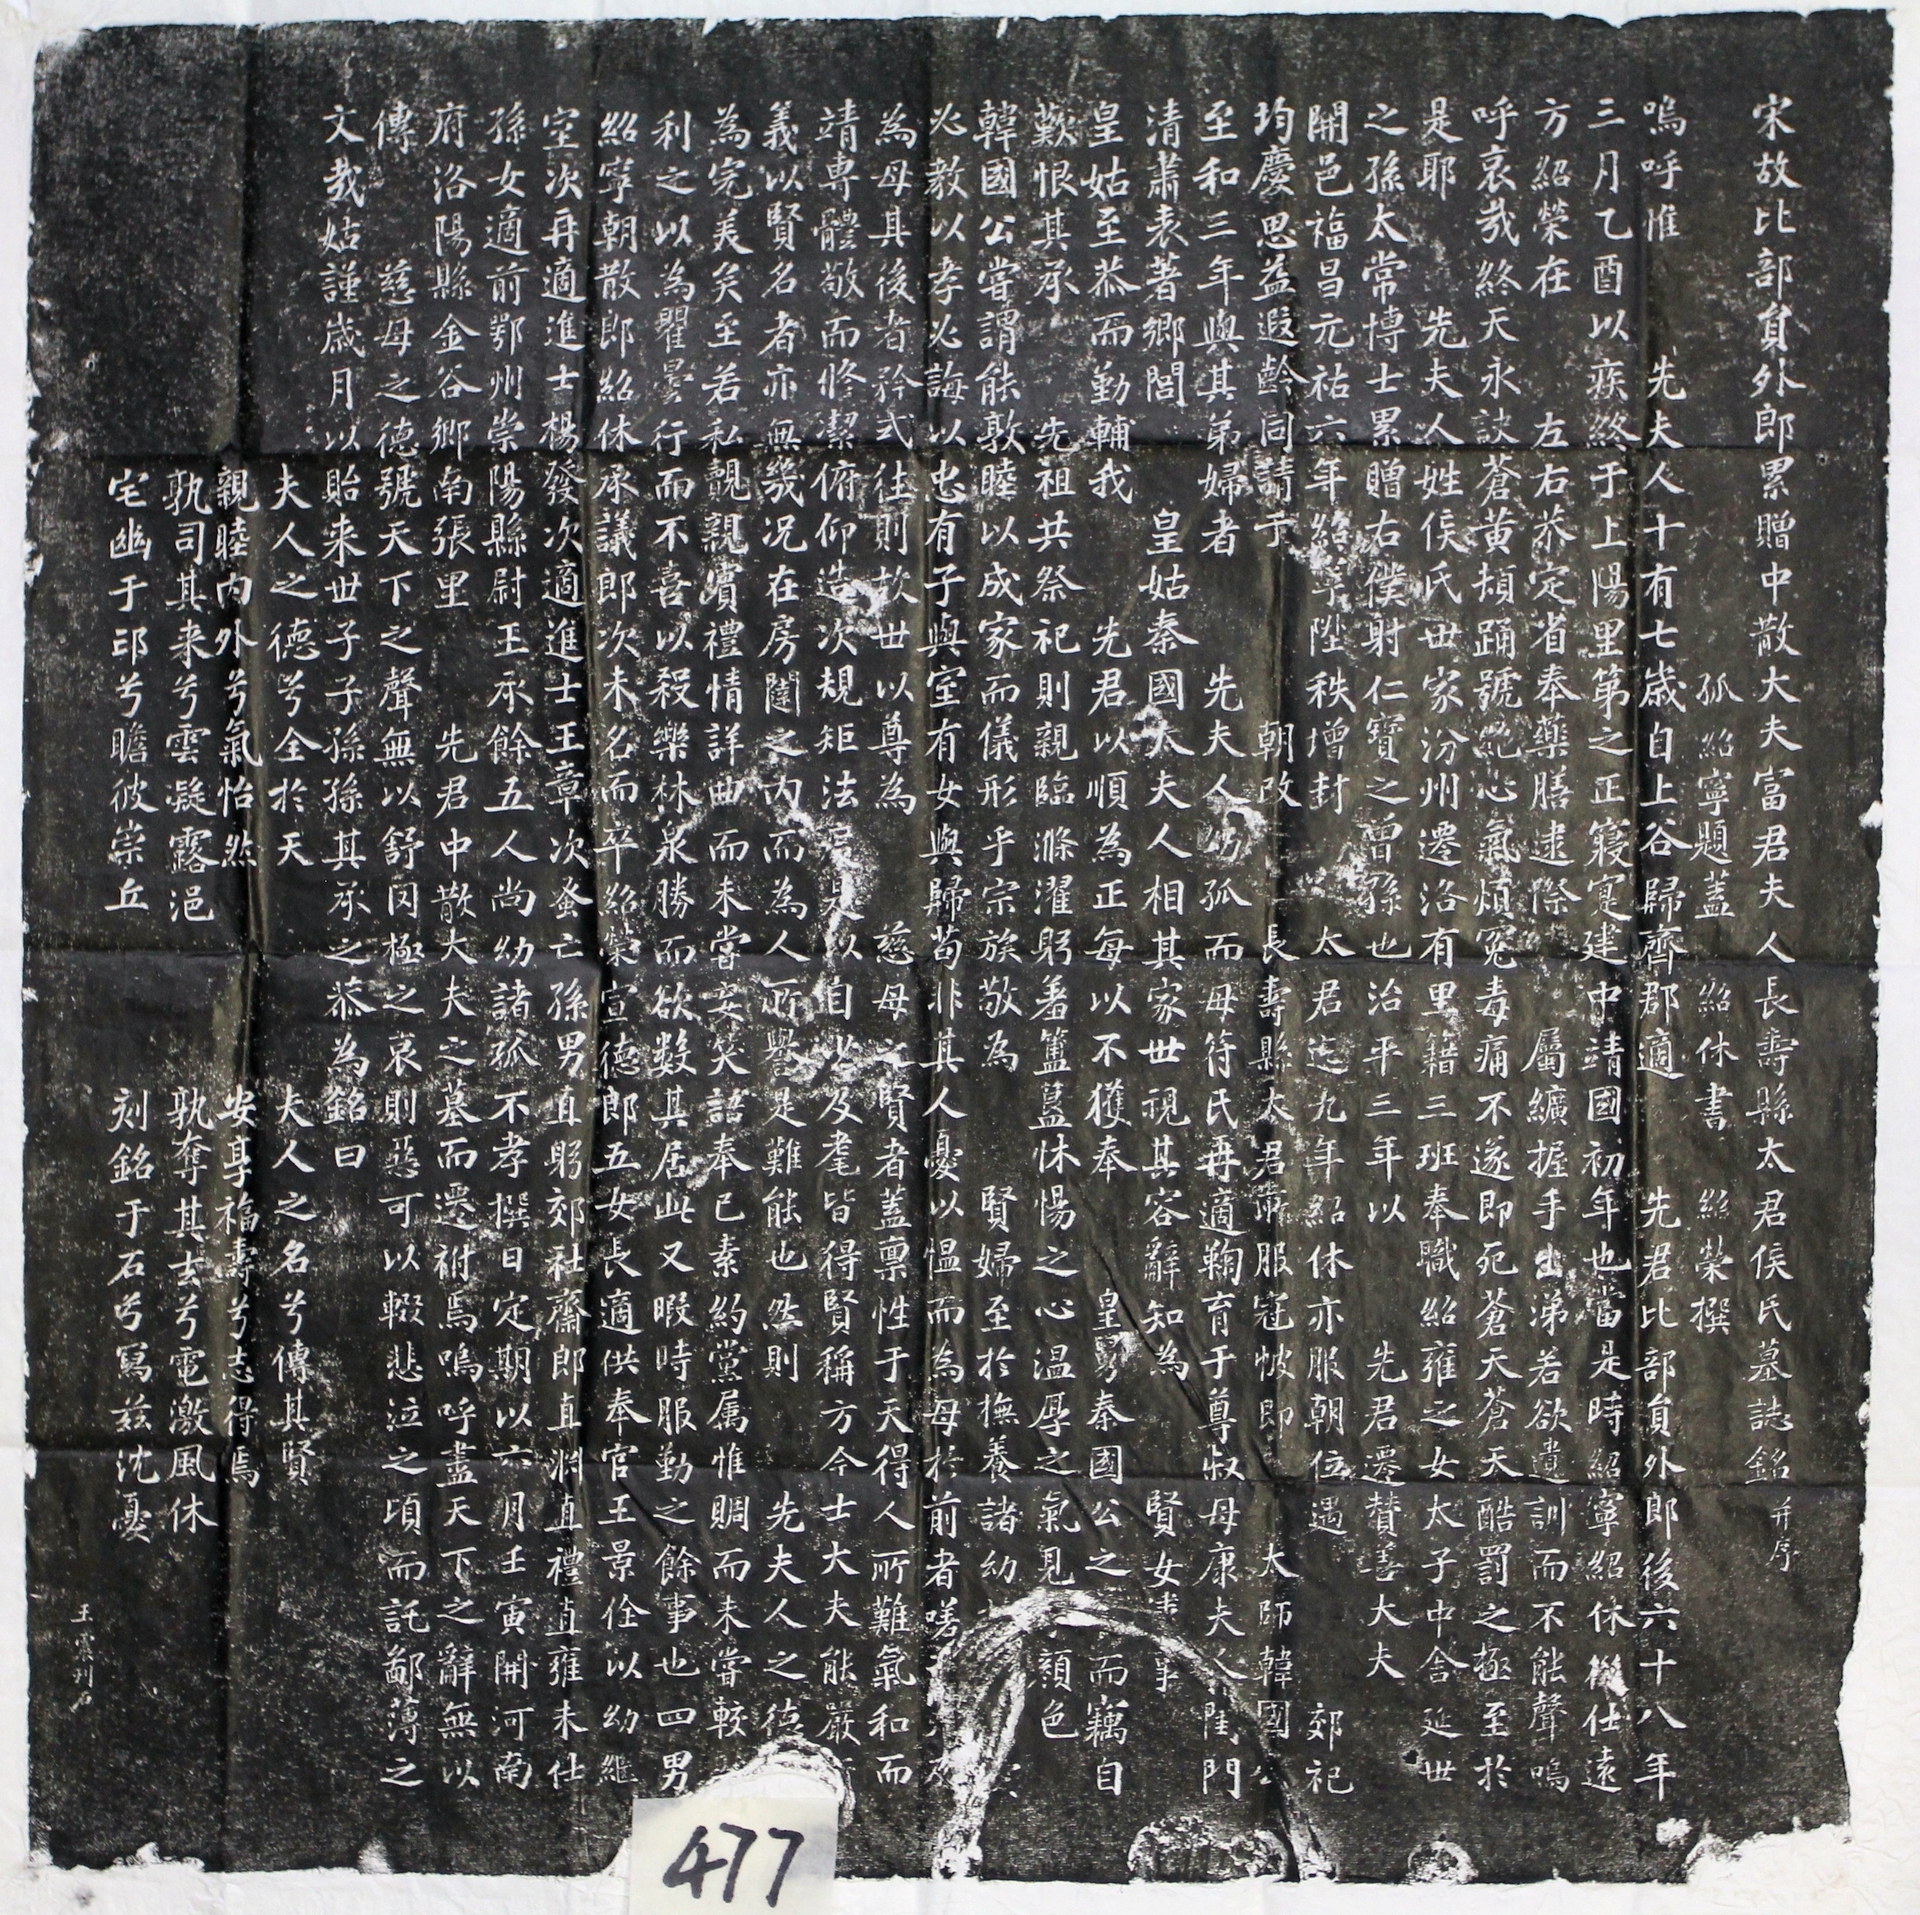 宋故比部員外郎累贈中散大夫富君夫人長壽縣太君侯氏墓誌銘并序
孤 紹寧題蓋 紹休書 紹榮撰
嗚呼惟 先夫人十有七歲自上谷歸齊郡適 先君比部員外郎後六十八年
三月乙酉以疾終于上陽里第之正寢寔建中靖國初年也當是時紹寧紹休從仕遠
方紹榮在 左右恭定省奉藥膳逮際 屬纊握手出涕若欲遺訓而不能聲嗚
呼哀哉終天永訣蒼黃頓踊號絕心氣煩冤毒痛不遂即死蒼天蒼天酷罰之極至於
是耶 先夫人姓侯氏世家汾州遷洛有里籍三班奉職紹雍之女太子中舍延世
之孫太常博士累贈右僕射仁寶之曾孫也治平二年以 先君遷贊善大夫
開邑福昌元祐六年紹寧陞秩增封 太君迄九年紹休亦服朝位遇 郊祀
均慶思益遐齡同請于 朝改 長壽縣太君 服冠帔即 太師韓國公
至和三年與其弟婦者 先夫人幼孤而母符氏再適鞠育于尊叔母康夫人 門
清肅表著鄉閭 皇姑秦國太夫人相其家世視其容辭知為 賢女 事
皇姑至恭而勤輔我 先君以順為正每以不獲奉 皇舅秦國公之 而竊自
歎恨其承 先祖共祭祀則親臨滌濯躬羞簠簋怵惕之心溫厚之氣見 顏色
韓國公嘗謂能敦睦以成家而儀形乎宗族敬為 賢婦至於撫養諸幼
必教以孝必誨以忠有子與室有女與歸苟非其人憂以慍而為母於前者嗟
為母其後者矜式往則故世以尊為 慈母之賢者蓋禀性于天得人所難氣和而
靖專體敬而脩潔俯仰造次規矩法度是以自少及耄皆得賢稱方今士大夫能嚴
義以賢名者亦無幾况在房闥之內而為人所譽是難能也然則 先夫人之德
為完美矣至若私覿親賓禮情詳曲而未嘗妄笑語奉己素約黨属惟賙而未嘗較
利之以為瞿曇行而不喜以殺樂林泉勝而欲数其居此又暇時服勤之餘事也四男
紹寧朝散郎紹休承議郎次未名而卒紹榮宣德郎五女長適供奉官王景佺以幼繼
室次再適進士楊發次適進士王章次蚤亡孫男直躬郊社齋郎直淵直禮直雍未仕
孫女適前鄂州崇陽縣尉王承餘五人尚幼諸孤不孝撰日定期以六月壬寅開河南
府洛陽縣金谷鄉南張里 先君中散大夫之墓而遷祔焉嗚呼盡天下之辭無以
傳 慈母之德號天下之聲無以舒罔極之哀則惡可以輟悲泣之頃而託鄙薄之
文哉姑謹歲月以貽来世子子孫孫其承之恭為銘曰
夫人之德兮全於天 夫人之名兮傳其賢
親睦內外兮氣怡然 安享福壽兮志得焉
孰司其来兮雲凝露浥 孰奪其去兮電激風休
宅幽于邙兮瞻彼崇丘 刻銘于石兮寫茲沈憂
王震刊石
477